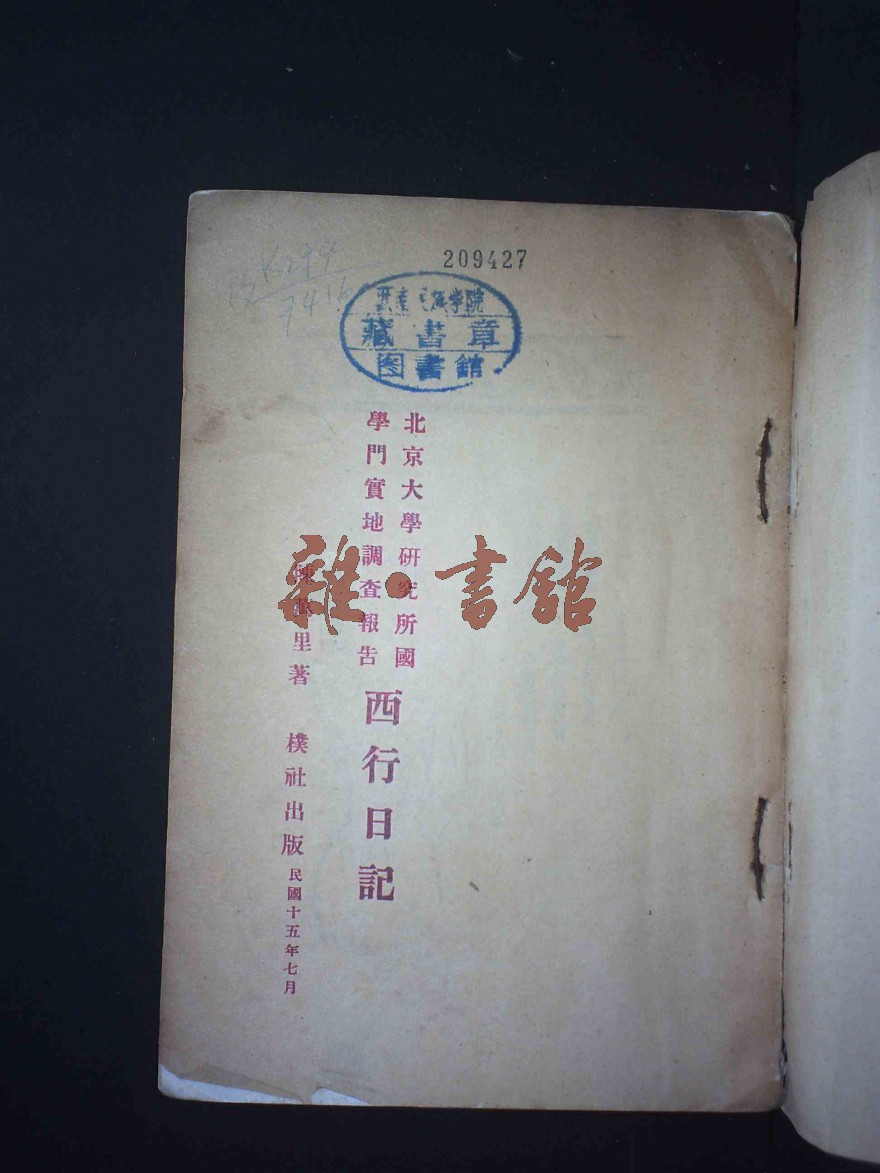 209427
藏書章
图書館
北京大學研究所國
學門實地調查報告
西行日記
陳萬里著 樸社出版 民國十五年七月
雜·書館